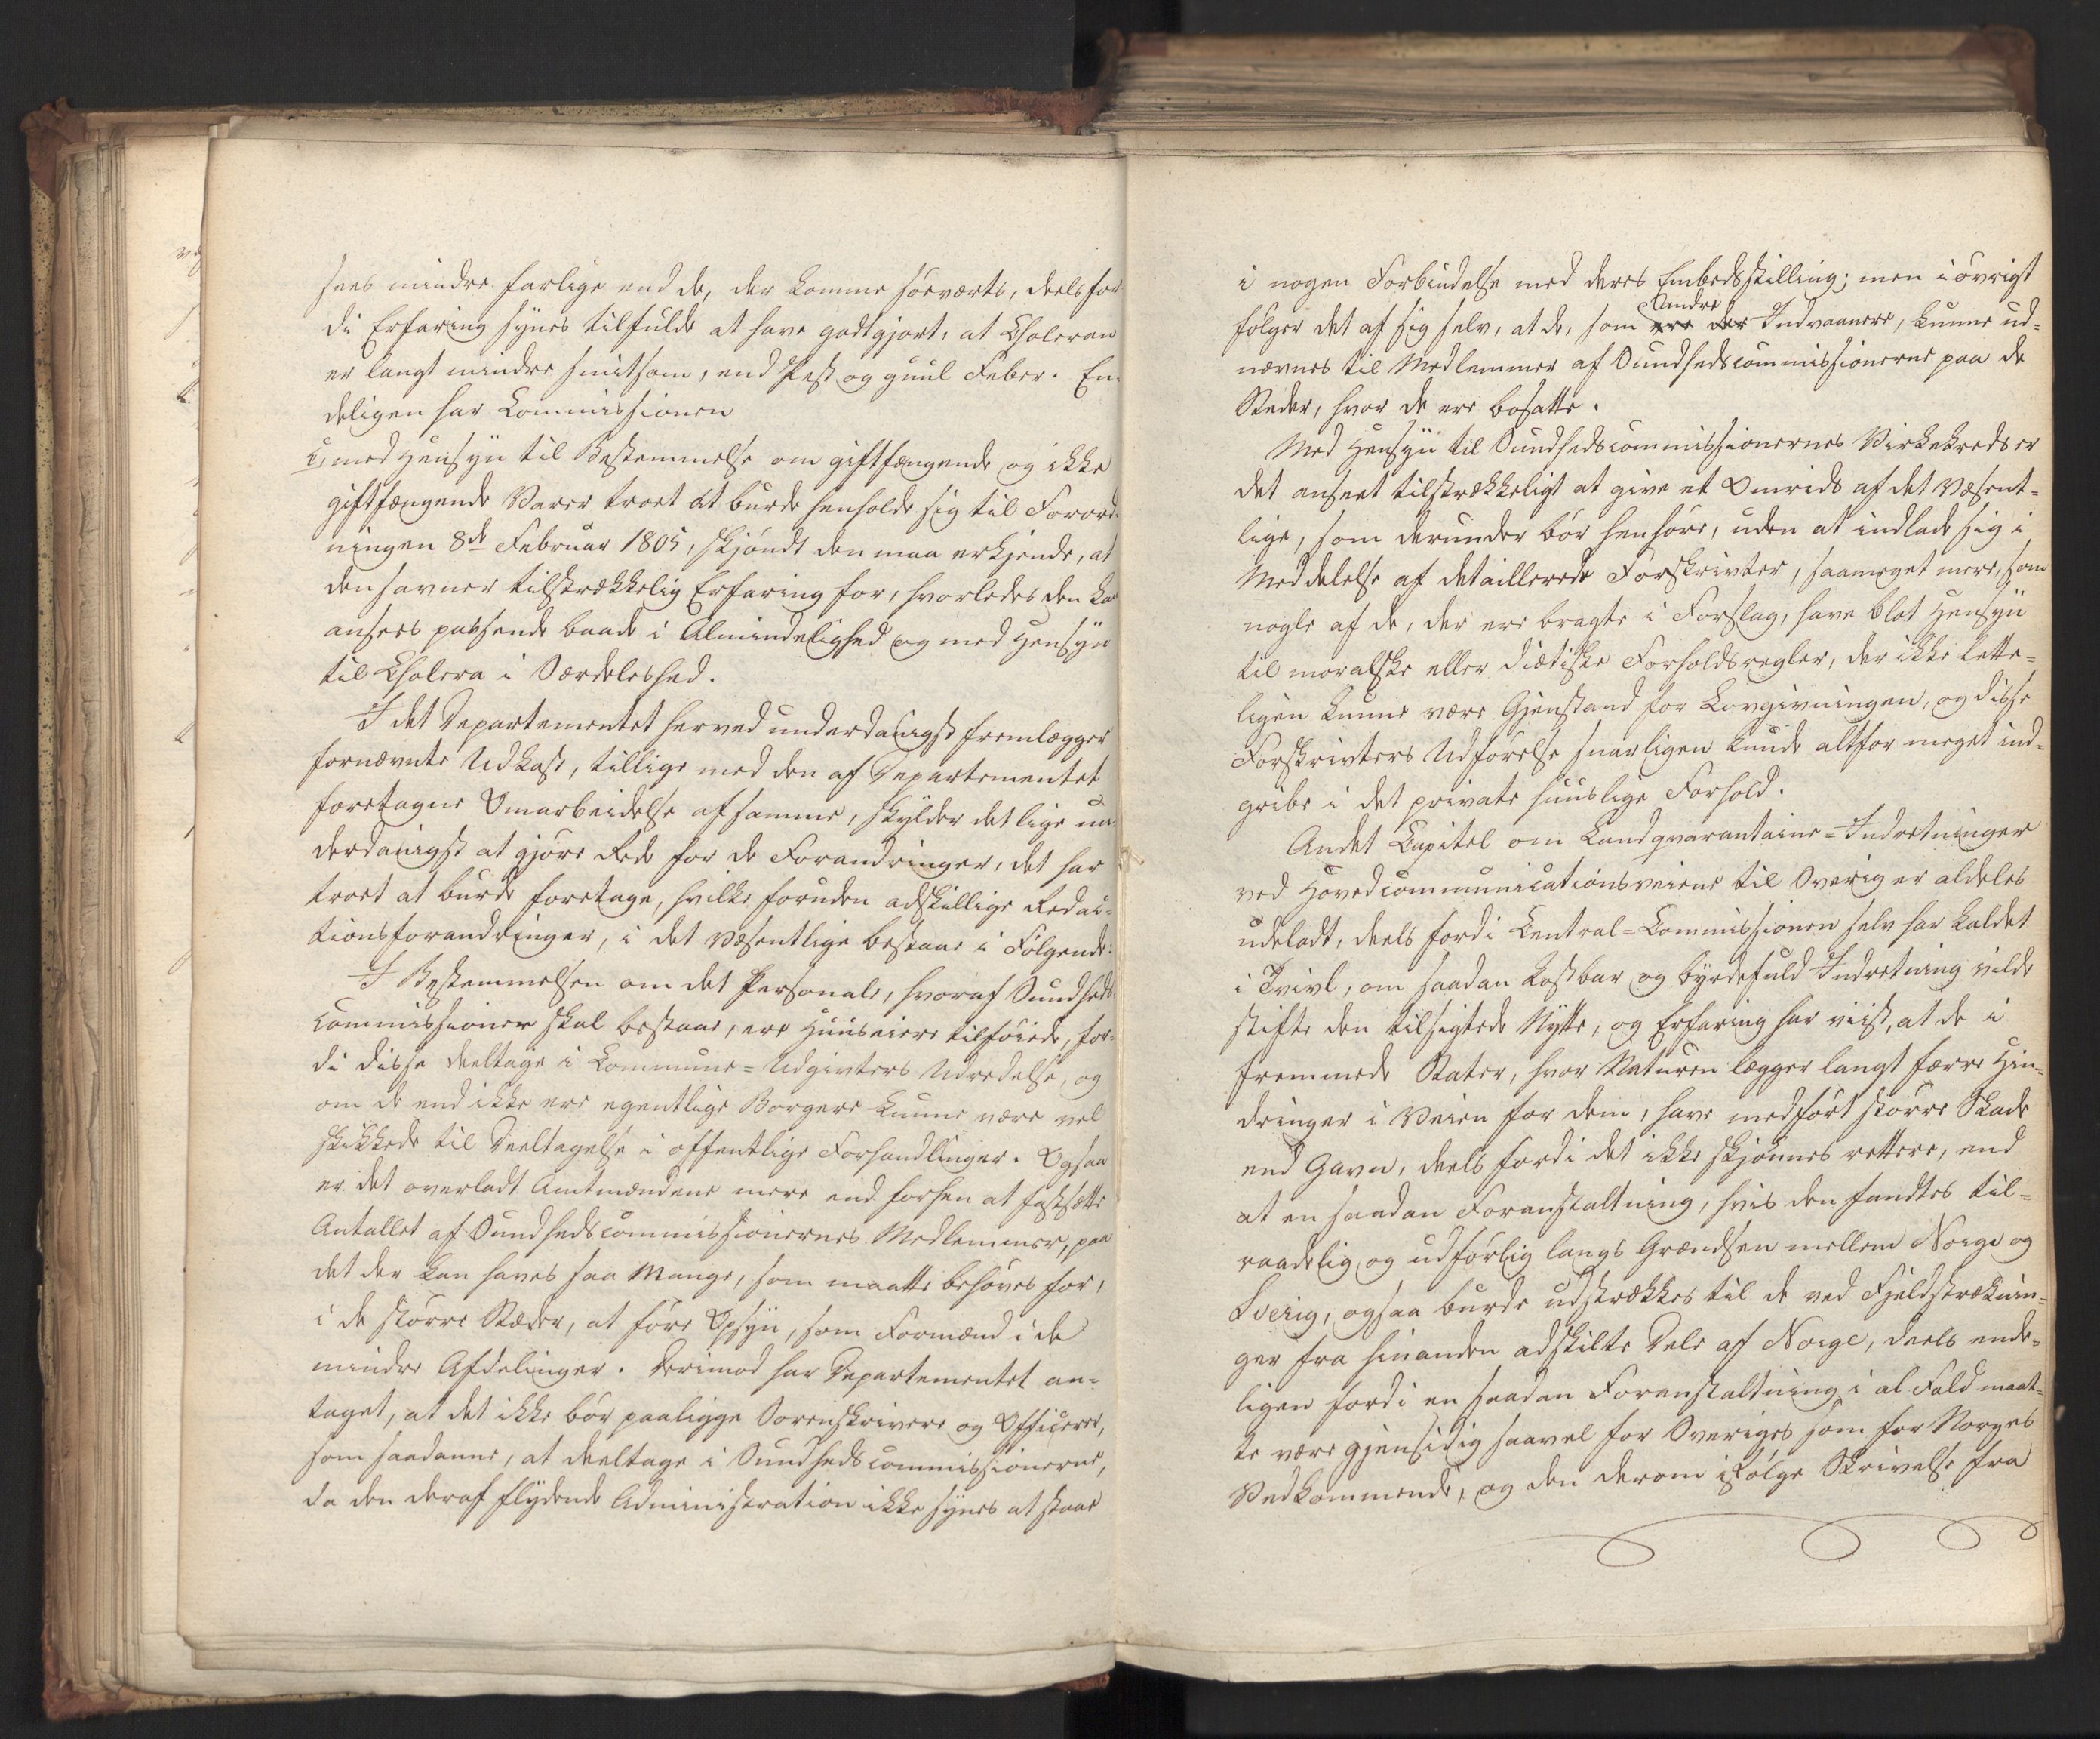 sees mindre farlige end de, der komme söeværts, deels for-
di Erfaring synes tilfulde at have godtgjort, at Choleraen
er langt mindre smitsom, end Pest og guul Feber. En-
deligen har Commissionen
c, med Hensyn til Bestemmelse om giftfængende og ikke
giftfængende Varer troet at burde henholde sig til Forord-
ningen 8de Februar 1805, skjöndt den maa erkjende, at
den savner tilstrækkelig Erfaring for, hvorledes den kan
ansees passende baade i Almindelighed og med Hensyn
til Cholera i Særdeleshed.
I det Departementet herved underdanigst fremlægger
fornævnte Udkast, tillige med den af Departementet
foretagne Omarbeidelse af samme, skylder det lige un-
derdanigst at gjöre Rede for de Forandringer, det har
troet at burde foretage, hvilke foruden adskillige Redac-
tionsforandringer, i det Væsentlige bestaae i Fölgende:
I Bestemmelsen om det Personale, hvoraf Sundheds-
commissioner skal bestaae, ere Huuseiere tilföiede, for-
di disse deeltage i Commune-Udgivters Udredelse, og
om de end ikke ere egentlige Borgere kunne være vel
skikkede til Deeltagelse i offentlige Forhandlinger. Ogsaa
er det overladt Amtmændene mere end forhen at fastsætte
Antallet af Sundhedscommissionernes Medlemmer, paa
det der kan haves saa Mange, som maatte behöves for,
i de större Stæder, at före Opsyn, som Formænd i de
mindre Afdelinger. Derimod har Departementet an-
taget, at det ikke bör paaligge Sorenskrivere og Officerer,
som saadanne, at deeltage i Sundhedscommissionerne,
da den deraf flydende Administration ikke synes at staae
i nogen Forbindelse med deres Embedsstilling; men iövrigt
fölger det af sig selv, at de, som ere der andre Indvaanere, kunne ud-
nævnes til Medlemmer af Sundhedscommissionerne paa de
Steder, hvor de ere bosatte.
Med Hensyn til Sundhedscommissionernes Virkekreds er
det anseet tilstrækkeligt at give et Omrids af det Væsent-
lige, som derunder bör henhöre, uden at indlade sig i
Meddelelse af detaillerede Forskrivter, saameget mere, som
nogle af de, der ere bragte i Forslag, have blot Hensyn
til moralske eller diætiske Forholdsregler, der ikke lette-
ligen kunne være Gjenstand for Lovgivningen, og disse
Forskrivters Udförelse snarligen kunde altfor meget ind-
gribe i det private huuslige Forhold.
Andet Capitel om Landqvarantaine-Indretninger
ved Hovedcommunicationsveiene til Sverig er aldeles
udeladt, deels fordi Central-Commissionen selv har kaldet
i Tvivl, om saadan kostbar og byrdefuld Indretning vilde
stifte den tilsigtede Nytte, og Erfaring har viist, at de i
fremmede Stater, hvor Naturen lægger langt færre Hin-
dringer i Veien for dem, have medfört större Skade
end Gavn, deels fordi det ikke skjönnes rettere, end
at en saadan Foranstaltning, hvis den fandtes til-
raadelig og udförlig langs Grændsen mellem Norge og
Sverig, ogsaa burde udstrækkes til de ved Fjeldstræknin-
ger fra hinanden adskilte Dele af Norge, deels ende-
ligen fordi en saadan Foranstaltning i al Fald maat-
te være gjensidig saavel for Sveriges som for Norges
Vedkommende, og den derom ifölge Skrivelse fra